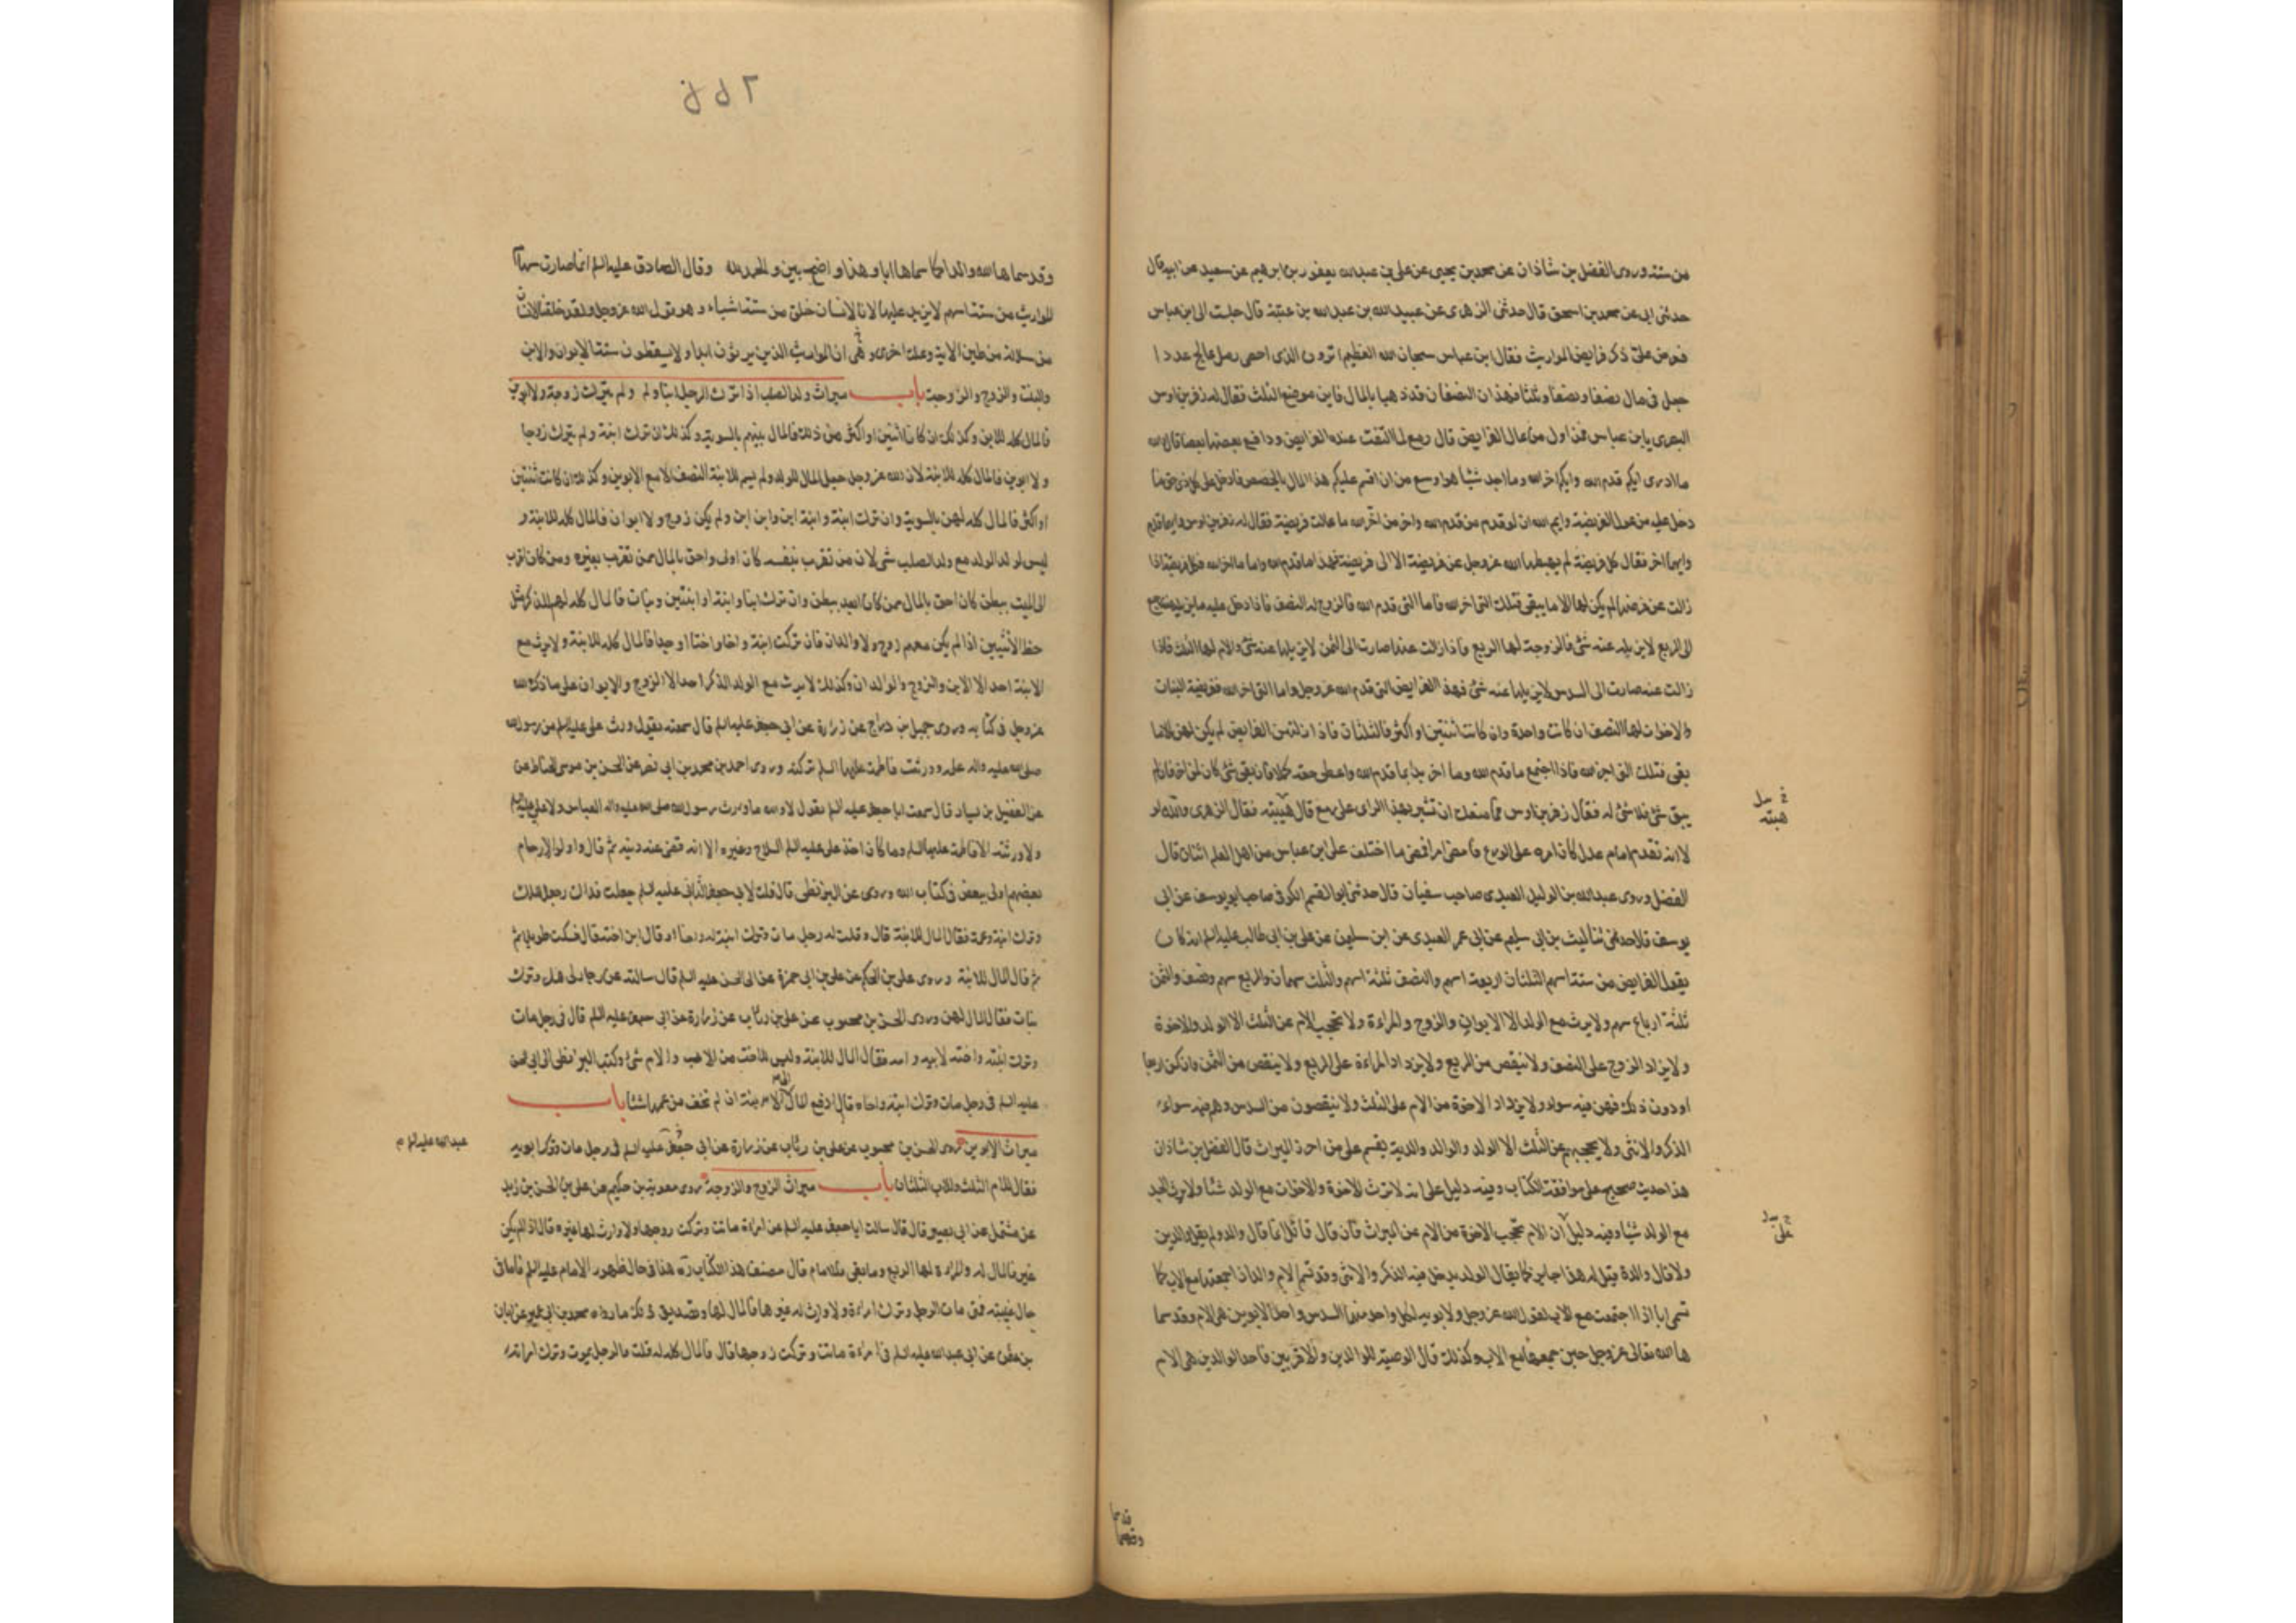 من ستة وروى الفضل بن شاذان عن محمد بن يحيى عن علي بن عبدالله يعقوب بن ابرهيم عن سعيد عن ابيه قال
حدثني ابي عن محمد بن اسحق قال حدثني الزهري عن عبيد الله بن عبد الله بن عتبة قال جلست الى ابن عباس
فعرض علي ذكر فرايض المواريث فقال ابن عباس سبحان الله العظيم اترون الذي احصى رمل عالج عددا
جعل في مال نصفا ونصفا وثلثا فهذان النصفان قد ذهبا بالمال فاين موضع الثلث فقال له زفر بن اوس
البصري يابن عباس فمن اول من اعال الفرايض قال رمع لما التفت عنده الفرايض ودافع بعضها بعضا قال والله
ما ادرى ايكم قدم الله وايكم اخر الله وما اجد شيئا هو اوسع من ان اقسم عليكم هذا المال بالحصص فادخل على كل ذي حق ما
دخل عليه من عول الفريضة وايم الله ان لو قدم من قدم الله واخر من اخر الله ما عالت فريضة فقال له زفر بن اوس وايها قدم
وايها اخر فقال كل فريضة لم يهبطها الله عز وجل عن فريضة الا الى فريضة فهذا ما قدم الله واما ما اخر الله فكل فريضة اذا
زالت عن فرضها لم يكن لها الا ما يبقى فتلك التي اخر الله فاما التي قدم الله فالزوج له النصف فاذا دخل عليه ما يزيله عنه رجع
الى الربع لا يزيله عنه شئ والزوجة لها الربع فاذا زالت عنه صارت الى الثمن لا يزيلها عنه شئ والام لها الثلث فاذا
زالت عنه صارت الى السدس لا يزيلها عنه شئ فهذه الفرايض التي قدم الله عز وجل واما التي اخر الله ففريضة البنات
والاخوات لها النصف ان كانت واحدة وان كانت اثنتين او اكثر فالثلثان فاذا ازالتهن الفرايض لم يكن لهن الا ما
يبقى فتلك التي اخر الله فاذا اجتمع ما قدم الله وما اخر بدا بما قدم الله واعطى حقه كملا فان بقى شئ كان لمن اخر فان لم
يبق شئ فلا شئ له فقال زفر بن اوس فما منعك ان تشير بهذا الراى على رمع قال هيبته فقال الزهري والله لو
لا انه تقدمه امام عدل كان امره على الورع فامضى امرا فمضى ما اختلف على ابن عباس من اهل العلم اثنان قال
الفضل وروى عبدالله بن الوليد العبدي صاحب سفيان قال حدثني ابو القسم الكوفي صاحب ابو يوسف عن ابي
يوسف قال حدثني ثنا ليث بن ابي سليم عن ابي عمر العبدي عن ابن سليمن عن علي بن ابي طالب عليه السلم انه كان
يقول الفرايض من ستة اسهم الثلثان اربعة اسهم والنصف ثلثة اسهم والثلث سهمان والربع سهم ونصف والثمن
ثلثة ارباع سهم ولا يرث مع الولد الا الابوان والزوج والمراءة ولا يحجب الام عن الثلث الا الولد والاخوة
ولا يزاد الزوج على النصف ولا ينقص من الربع ولا يزداد المراءة على الربع ولا ينقص من الثمن وان كن اربعا
او دون ذلك فهن فيه سواء ولا يزداد الاخوة من الام على الثلث ولا ينقصون من السدس وهم فيه سواء
الذكر والانثى ولا يحجبهم عن الثلث الا الولد والوالد والدية يقسم على من احرز الميراث قال الفضل بن شاذان
هذا حديث صحيح على موافقة الكتاب وفيه دليل على انه لا ترث الاخوة والاخوات مع الولد شيئا ولا يرث الجد
مع الولد شيئا وفيه دليل ان الام تحجب الاخوة من الام عن الميراث فان قال قائل انما قال والد ولم يقل والدين
ولا قال والدة قيل له هذا جايز كما يقال الولد يدخل فيه الذكر والانثى وقد تسمى الام والدا اذا جمعتها مع الاب كما
تسمى ابا اذا اجتمعت مع الاب لقول الله عز وجل ولابويه لكل واحد منهما السدس واحد الابوين هي الام وقد سما
ها الله تعالى عز وجل حين جمعها مع الاب وكذلك قال الوصية للوالدين والاقربين فاحد الوالدين هي الام
هيبته
على
وقد سماها
وقد سماها الله والدا كما سماها ابا وهذا واضح بين والحمد لله وقال الصادق عليه السلم انما صارت سهام
المواريث من ستة اسهم لا يزيد عليها لان الانسان خلق من ستة اشياء وهو قول الله عز وجل ولقد خلقنا الانسان
من سلالة من طين الاية وعلة اخرى وهي ان المواريث الذين يرثون ابدا ولا يسقطون ستة الابوان والابن
والبنت والزوج والزوجة باب ميراث ولد الصلب اذا ترك الرجل ابنا ولم يترك زوجة ولا ابوين
فالمال كله للابن وكذلك ان كانا اثنين او اكثر من ذلك فالمال بينهم بالسوية وكذلك ان ترك ابنة ولم يترك زوجا
ولا ابوين فالمال كله للابنة لان الله عز وجل جعل المال للولد ولم يسم للابنة النصف الا مع الابوين وكذلك ان كانت اثنتين
او اكثر فالمال كله لهن بالسوية وان ترك ابنة وابنة ابن وابن ابن ولم يكن زوج ولا ابوان فالمال كله للابنة و
ليس لولد الولد مع ولد الصلب شئ لان من تقرب بنفسه كان اولى واحق بالمال ممن تقرب بغيره ومن كان اقرب
الى الميت ببطن كان احق بالمال ممن كان ابعد ببطن وان ترك ابنا وابنة او ابنتين وبنات فالمال كله لهم للذكر مثل
حظ الانثيين اذا لم يكن معهم زوج ولا والدان فان تركت ابنة واخا واختا او جدا فالمال كله للابنة ولا يرث مع
الابنة احد الا الابن والزوج والوالدان وكذلك لا يرث مع الولد الذكر احد الا الزوج والابوان على ما ذكر الله
عز وجل في كتابه وروى جميل بن دراج عن زرارة عن ابي جعفر عليه السلم قال سمعته يقول ورث علي عليه السلم من رسول الله
صلى الله عليه واله علمه وورثت فاطمة عليها السلم تركته وروى احمد بن محمد بن ابي نصر عن الحسن بن موسى الحناط عن
عن الفضيل بن يسار قال سمعت ابا جعفر عليه السلم يقول لا والله ما ورث رسول الله صلى الله عليه واله العباس ولا علي عليه السلم
ولا ورثته الا فاطمة عليها السلم وما كان اخذ علي عليه السلم السلاح وغيره الا انه قضى عنه دينه ثم قال واولوا الارحام
بعضهم اولى ببعض في كتاب الله وروى عن البزنطي قال قلت لابي جعفر الثاني عليه السلم جعلت فداك رجل هلك
وترك ابنة وعمه فقال المال للابنة قال وقلت له رجل مات وترك ابنة له واخا او قال ابن اخته قال فسكت طويلا ثم
ثم قال المال للابنة وروى علي بن الحكم عن علي بن ابي حمزة عن ابي الحسن عليه السلم قال سالته عن رجل هلك وترك
بنات فقال المال لهن وروى الحسن بن محبوب عن علي بن رئاب عن زرارة عن ابي جعفر عليه السلم قال في رجل مات
وترك ابنته واخته لابيه وامه فقال المال للابنة وليس للاخت من الاب والام شئ وكتب البزنطي الى ابي الحسن
عليه السلم في رجل مات وترك ابنته واخاه قال ادفع المال الى الابنة ان لم تخف من عمها شيئا باب
ميراث الابوين روى الحسن بن محبوب عن علي بن رئاب عن زرارة عن ابي جعفر عليه السلم في رجل مات وترك ابويه
فقال للام الثلث وللاب الثلثان باب ميراث الزوج والزوجة روى معوية بن حكيم عن علي بن الحسن بن زيد
عن مشمعل عن ابي بصير قال قال سالت ابا جعفر عليه السلم عن امراءة ماتت وتركت زوجها ولا وارث لها غيره قال اذا لم يكن
غيره فالمال له والمراءة لها الربع وما بقى فللامام قال مصنف هذا الكتاب ره هذا في حال ظهور الامام عليه السلم فاما في
حال غيبته فمتى مات الرجل وترك امراءة ولا وارث له غيرها فالمال لها وتصديق ذلك ما رواه محمد بن ابي عمير عن ابان
بن عثمن عن ابي عبدالله عليه السلم في امراءة ماتت وتركت زوجها قال فالمال كله له قلت فالرجل يموت وترك امراته
عبدالله عليه السلم